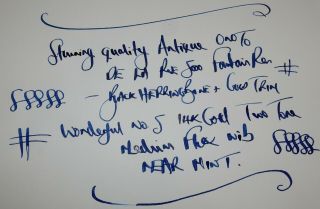 Stunning quality Antique ONOTO
DE LA RUE 5000 Fountain Pen #
- BLACK HERRINGBONE + GOLD TRIM
# Wonderful No 5 14K Gold Two Tone
Medium Flex nib
NEAR MINT.